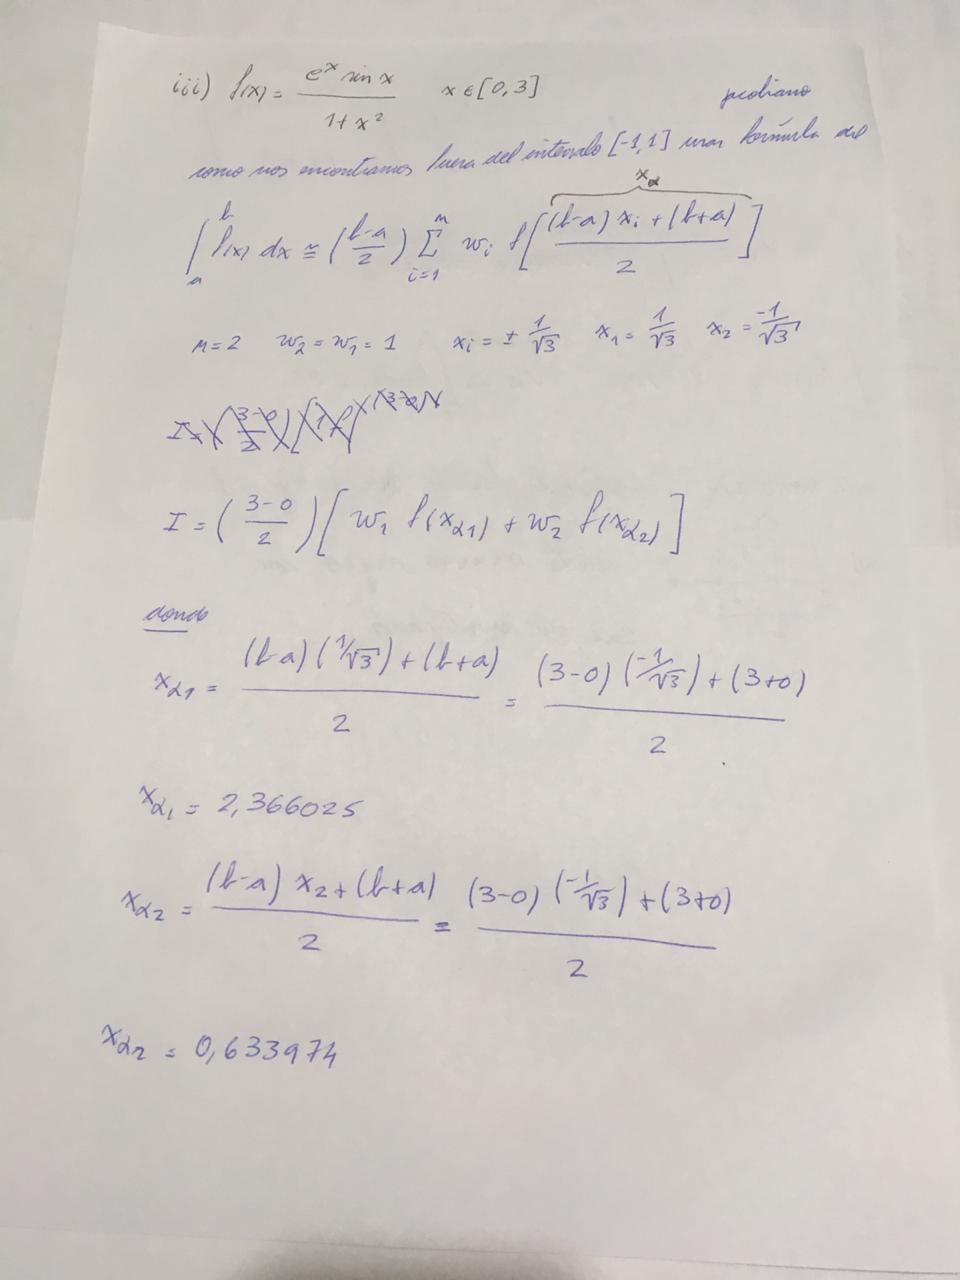 iii) f(x) = e^x sin x / 1+x² x ∈ [0,3]
jacobiano
como nos encontramos fuera del intervalo [-1,1] usar formula del
x_α
∫_a^b f(x) dx ≅ (b-a / 2) Σ_{i=1}^n w_i f[(b-a) x_i + (b+a) / 2]
n=2 w_2 = w_1 = 1 x_i = ± 1/√3 x_1 = 1/√3 x_2 = -1/√3
I = (3-0 / 2) [w_1 f(x_α1) + w_2 f(x_α2)]
donde
x_α1 = (b-a) (1/√3) + (b+a) / 2 = (3-0) (-1/√3) + (3+0) / 2
x_α1 = 2,366025
x_α2 = (b-a) x_2 + (b+a) / 2 = (3-0) (-1/√3) + (3+0) / 2
x_α2 = 0,633974